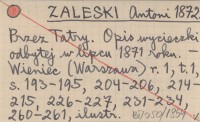 ZALESKI Antoni 1872.
Przez Tatry. Opis wycieczki
odbytej w lipcu 1871 roku. -
Wieniec (Warszawa) r. 1, t. 1,
s. 193-195, 204-206, 214-
215, 226-227, 231-234,
260-261, ilustr.